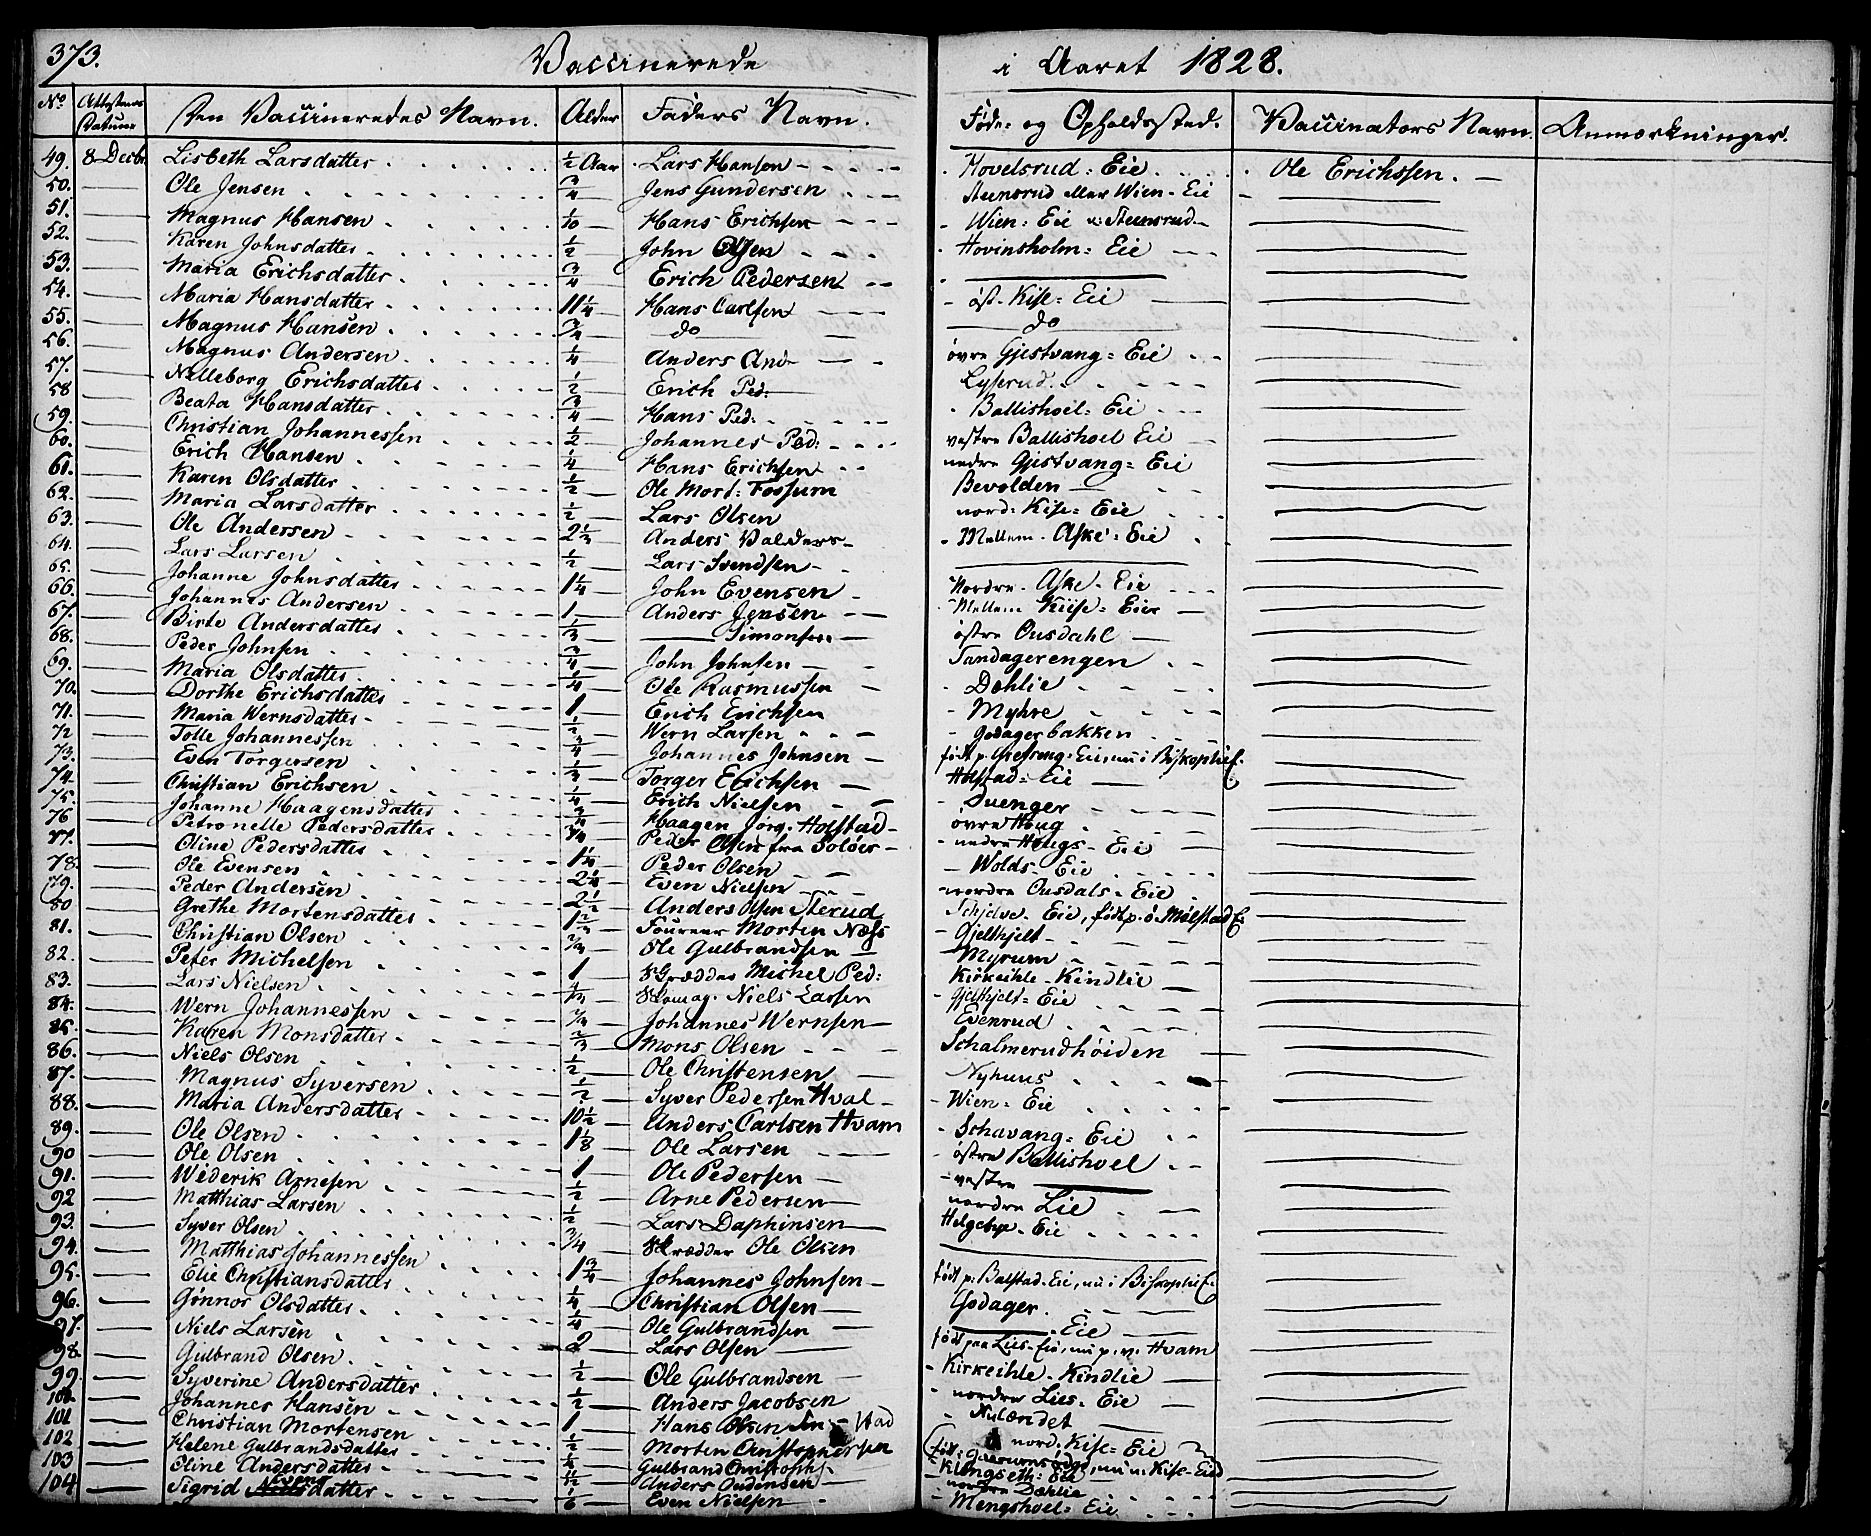 373. Vaccinerede i Aaret 1828.
No Attestens Datum Den Vaccineredes Navn. Alder Faders Navn. Føde- og Opholdssted. Vaccinators Navn. Anmærkninger.
49. 8 Decbr. Lisbeth Larsdatter ½ Aar Lars Hansen Hovelsrud-Eie Ole Erichssen.
50. Ole Jensen ¾ Jens Gundersen Steensrud eller Wien-Eie
51. Magnus Hansen 1/10 Hans Erichsen Wien-Eie Steensrud
52. Karen Johnsdatter ½ John Olsen Hovinsholm-Eie
53. Maria Erichsdatter ¾ Erich Pedersen
54. Maria Hansdatter 11¼ Hans Carlsen øst-Kise-Eie
55. Magnus Hansen ¾ do do
56. Magnus Andersen ¼ Anders And øvre Gjestvang-Eie
57. Nilleborg Erichsdatter ½ Erich Ped: Lyserud
58 Beata Hansdatter ¾ Hans Ped: Ballishoel-Eie
59. Christian Johannessen ½ Johannes Ped: vestre Ballishoel Eie
60. Erich Hansen ¼ Hans Erichsen nedre Gjestvang-Eie
61. Karen Olsdatter ½ Ole Mort: Fossum Bevolden
62. Maria Larsdatter ½ Lars Olsen nord: Kise-Eie
63. Ole Andersen Anders Valders Mellem-Aske-Eie
64. Lars Larsen ½ Lars Svendsen
65. Johanne Johnsdatter 1¼ John Evensen Nordre-Aske-Eie
66. Johannes Andersen 1 Anders Jensen Mellem Kiise-Eier
67. Birte Andersdatter Simonsen østre Ousdahl
68. Peder Johnsen ¾ John Johnsen Tandagerengen
69. Maria Olsdatter ¼ Ole Rasmussen Dæhlie
70. Dorthe Erichsdatter 1 Erich Erichsen Myhre
71. Maria Wernsdatter ½ Wern Larsen Godagerbakken
72 Tolle Johannessen ¾ Johannes Johnsen født p. Eie, nu i Biskoplie E.
73. Even Torgersen Torger Erichsen Holstad-Eie
74. Christian Erichsen ¼ Erich Nielsen Duenger
75. Johanne Haagensdatter Haagen Jørg. Holstad øvre Houg
76 Petronelle Pedersdatter ¾ Peder Olsen fra Soløer nedre Hougs-Eie
77. Oline Pedersdatter 1¼ Peder Olsen Wolds-Eie
78. Ole Evensen 2¼ Even Nielsen nordre Ousdals-Eie
79. Peder Andersen 2½ Anders Olsen Sterud Schjelve-Eie, født p. ø. Mølstad E.
80 Grethe Mortensdatter Foureer Morten Næss Gjelthjelt
81. Christian Olsen Ole Gulbrandsen Myrum
82. Peter Michelsen 1 Skrædder Michel Ped: Kirkeihle-Kindlie
83. Lars Nielsen Skomag. Niels Lassen Gjelthjelt-Eie
84. Wern Johannessen Johannes Wernsen Evenrud
85. Karen Monsdatter Mons Olsen Schalmerudhöiden
86. Niels Olsen ½ Ole Christensen Nyhuus
87. Magnus Syversen ½ Syver Pedersen Hval Wien-Eie
88. Maria Andersdatter 10½ Anders Carlsen Hvam Schavang-Eie
89. Ole Olsen 1⅛ Ole Larsen østre Ballishoel
90 Ole Olsen 1 Ole Pedersen vestre
91. Wederik Arnesen ½ Arne Pedersen nordre Lie
92 Matthias Larsen ½ Lars Daphinsen Helgebye-Eie
93. Syver Olsen ¾ Skrædder Ole Olsen
94. Matthias Johannessen 1¾ Johannes Johnsen født p. Balstad-Eie, nu i Biskoplie E.
95. Elie Christiansdatter ¼ Christian Olsen Godager
96. Gønnor Olsdatter ¼ Ole Gulbrandsen Eie
97. Niels Larsen 2 Lars Olsen født paa Lies-Eie, nu p. v. Hvam
98. Gulbrand Olsen ½ Ole Gulbrandsen Kirkeihle-Kindlie
99. Syverine Andersdatter ½ Anders Jacobsen nordre Lies-Eie
100 Johannes Hansen 1 Hans Olsen Nylændet
101 Christian Mortensen ½ Morten Christophersen nord. Kise-Eie
102 Helene Gulbrandsdatter Gulbrand Christophs. nu n: Kise-Eie
103 Oline Andersdatter Anders Oudensen Klingseth: Eie nordre Dæhlie
104 Sigrid Evensdatter Even Nielsen Mengshoel-Eie